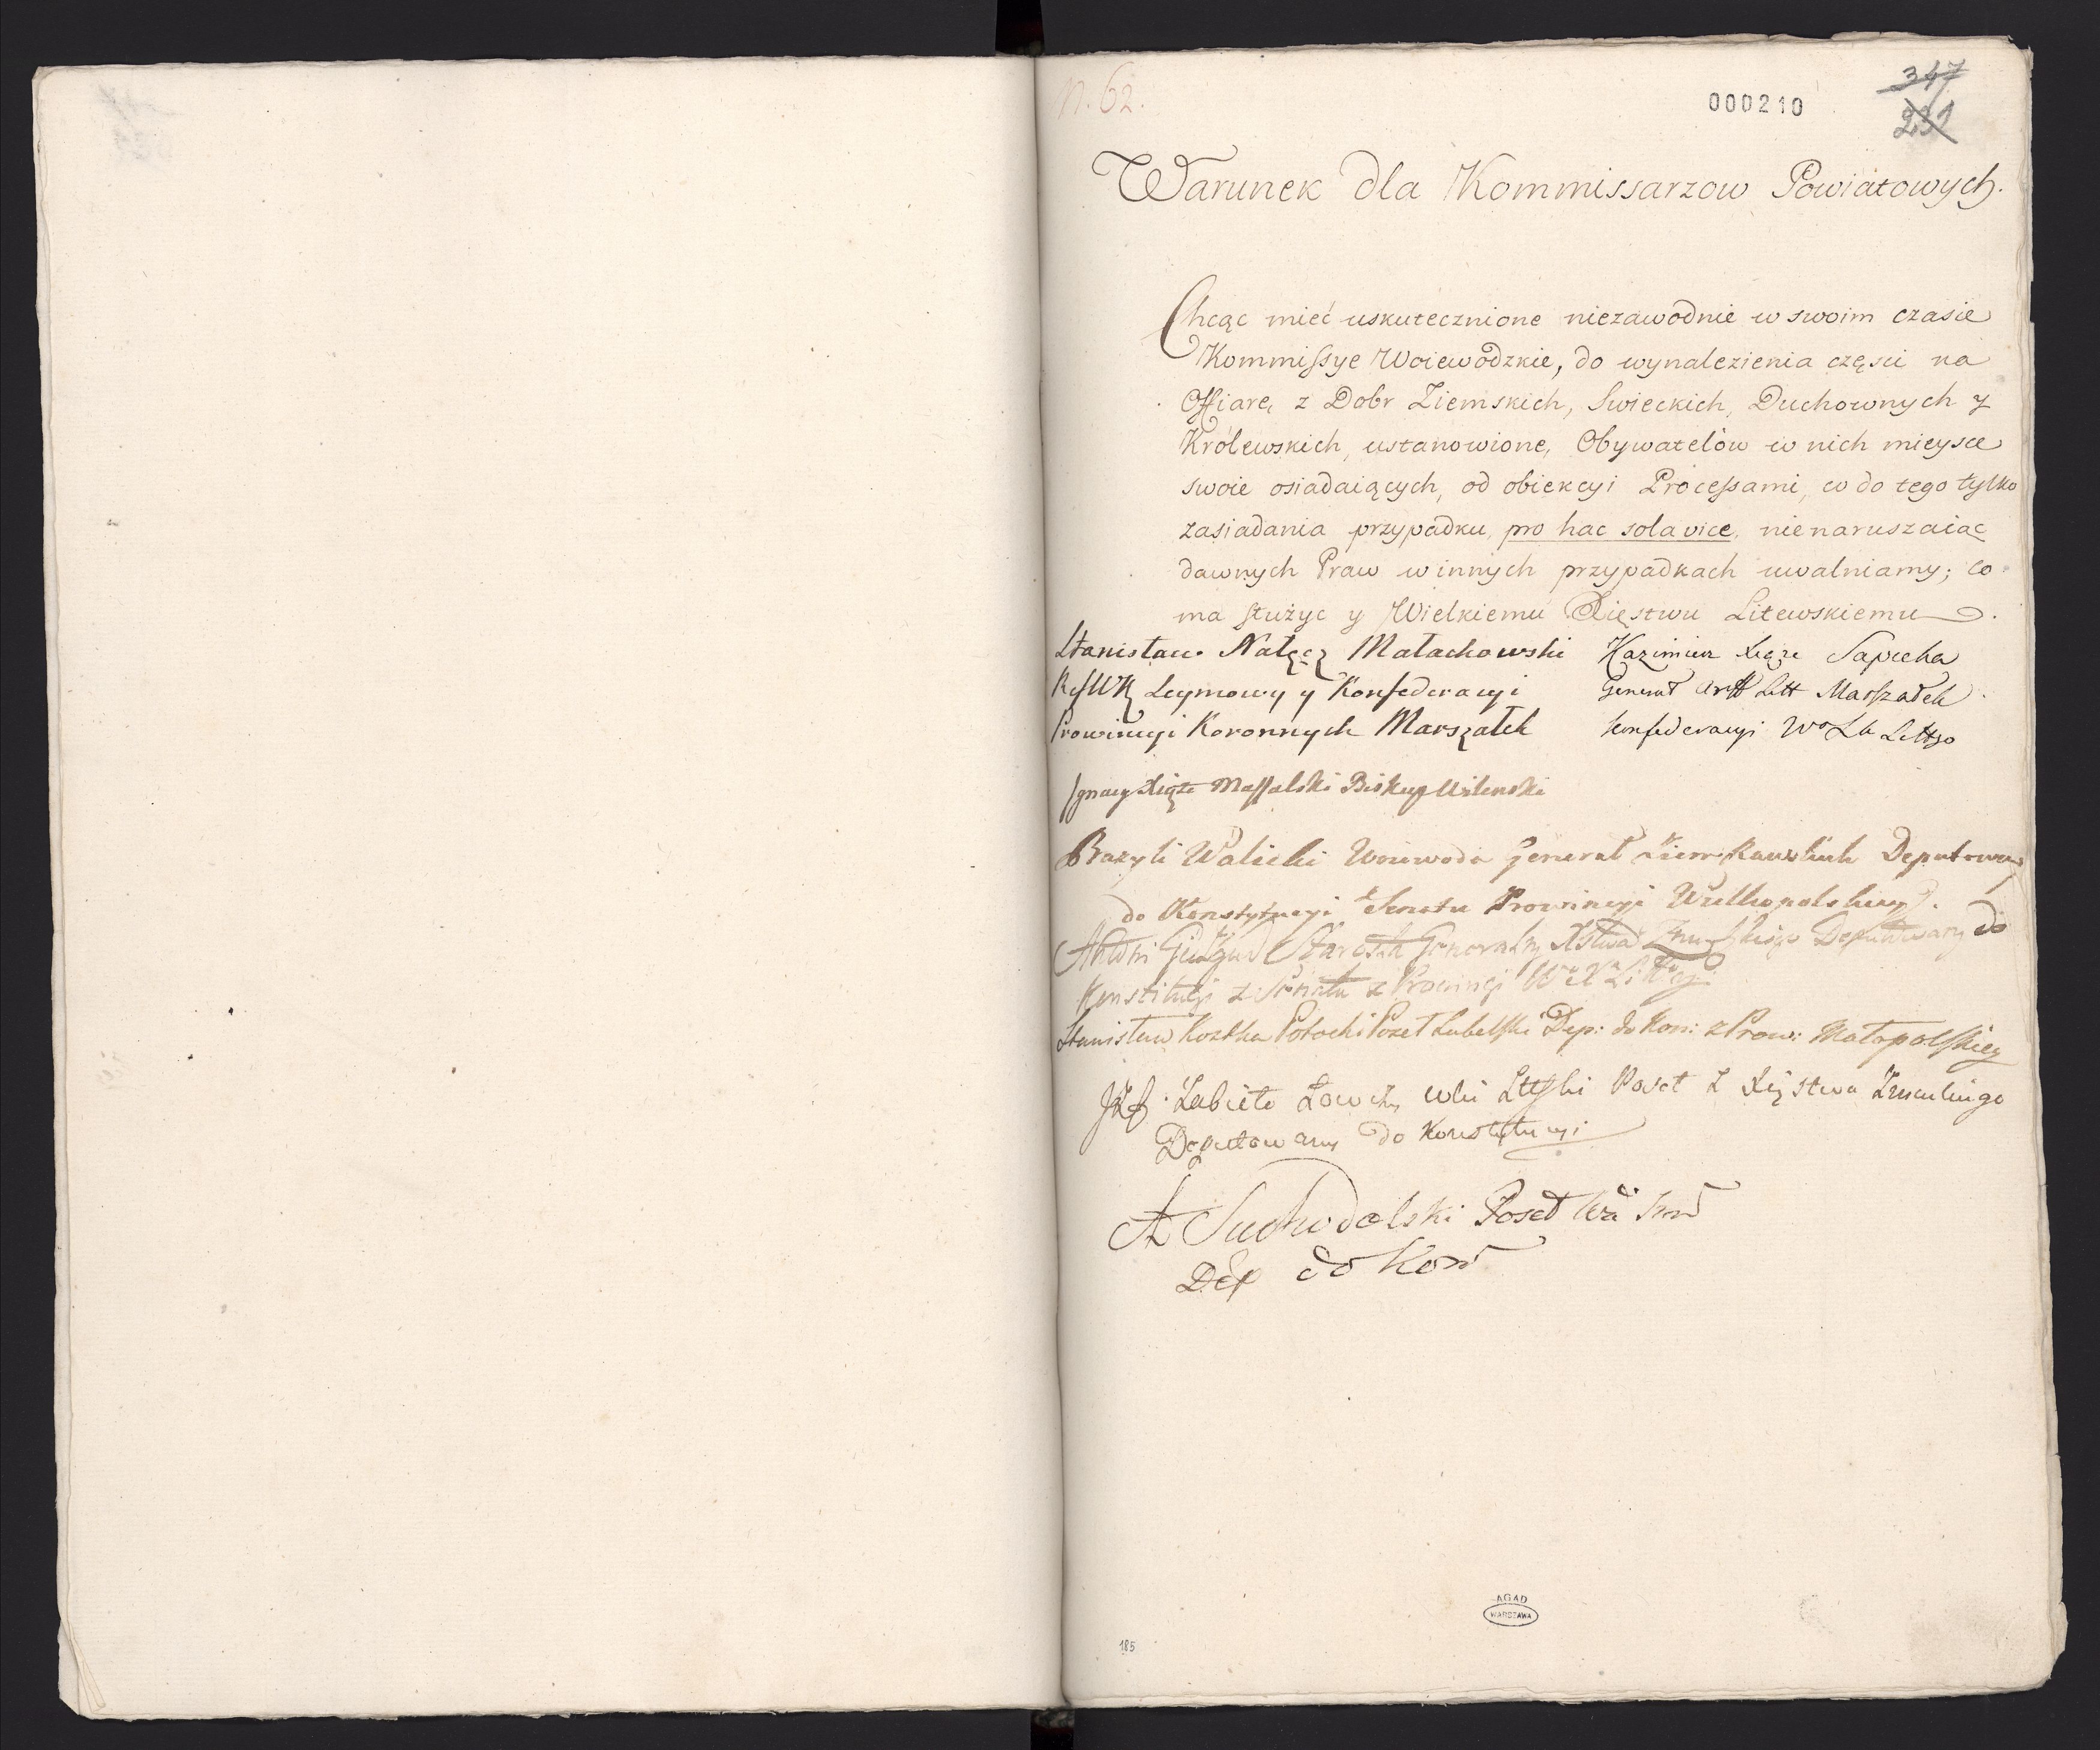 N. 62.
000210
347
231
Warunek dla Kommissarzow Powiatowych.
Chcąc mieć uskutecznione niezawodnie w swoim czasie
Kommissye Woiewodzkie, do wynalezienia częsci na
Offiarę, z Dobr Ziemskich, Swieckich, Duchownych y
Królewskich, ustanowione, Obywatelòw w nich mieysce
swoie osiadaiących, od obiekcyi Processami, co do tego tylko
zasiadania przypadku, pro hac sola vice, nienaruszaiąc
dawnych Praw w innych przypadkach uwalniamy; co
ma służyc y Wielkiemu Xięstwu Litewskiemu.
Stanisław Nałęcz Małachowski
R K Seymowy y Konfederacyi
Prowincyi Koronnych Marszałek
Kazimierz Xiąże Sapieha
Generał Art Litt Marszałek
Konfederacyi Wo Litt
Ignacy Xiąże Massalski Biskup Wilenski
Bazyli Walicki Woiewoda Generał Ziem Rawskich Deputowany
do Konstytucyi z Senatu Prowincyi Wielkopolskiey.
Antoni Giełgud Starosta Generalny Xstwa Zmudzkiego Deputowany do
Konstitucyi z Senatu z Prowincyi W X Litt
Stanisław Kostka Potocki Poseł Lubelski Dep: do Kon: z Prow: Małopolskiey
Józef Zabiełło Łowczy Wki Litt Poseł z Xięstwa Zmudzkiego
Deputowany do Konstytucyi
A Suchodolski Poseł
Dep do Kon
AGAD
WARSZAWA
185